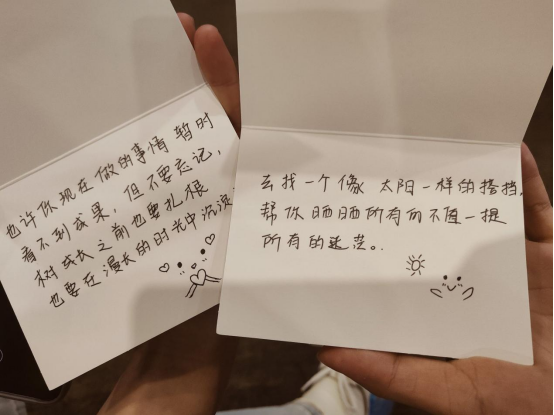 也许你现在做的事情 暂时
看不到成果，但不要忘记，
树成长之前也要扎根
也要在漫长的时光中沉淀
去找一个像 太阳一样的搭挡，
帮你晒晒所有的不值一提
所有的迷茫。